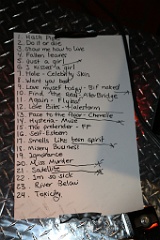 2. Do it or die
3. Show me how to love
4. Fallen leaves
5. Just a girl
6. I kissed a girl
7. Hole - Celebrity Skin
8. Want you bad
9. Love myself today - Bif naked
10. Find the Real - AlterBridge
11. Again - Flyleaf
12. Love Bites - Halestorm
13. Face to the floor - Chevelle
14. Hysteria - Muse
15. The pretender - FF
16. Self Esteem
17. Smells like teen spirit
18. Misery Business
19. Ignorance
20. Miss Murder
21. Satellite
22. Im so sick
23. River Below
24. Toxicity